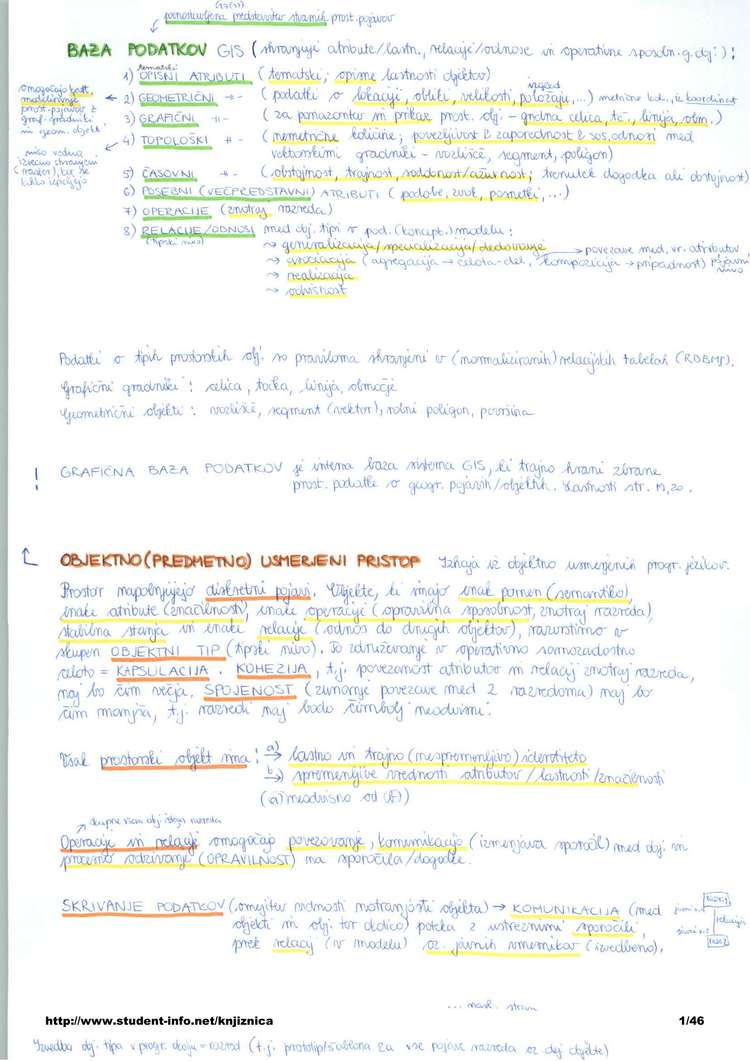 poenostavljena predstavitev stvarnih prost. pojavov
BAZA PODATKOV GIS (shranjuje atribute/lastn., relacije/odnose in operativne sposobn. g. obj.):
tematski
1) OPISNI ATRIBUTI (tematski; opisne lastnosti objektov)
izgled
2) GEOMETRIČNI -"- (podatki o lokaciji, obliki, velikosti, položaju,...) metrične kol., iz koordinat
omogočajo
modeliranje
prost. pojavov z
graf. gradniki
in geom. objekti
3) GRAFIČNI -"- (za ponazoritev in prikaz prost. obj. - gridna celica, tč., linija, obm.)
4) TOPOLOŠKI -"- (nemetrične količine; povezljivost & zaporednost & sos. odnosi med
vektorskimi gradniki - vozlišče, segment, poligon)
niso vedno
izrecno shranjeni
5) ČASOVNI -"- (obstojnost, trajnost, sodobnost/ažurnost; trenutek dogodka ali obstojnost)
6) POSEBNI (VEČPREDSTAVNI) ATRIBUTI (podobe, zvok, posnetki,...)
7) OPERACIJE (znotraj razreda)
8) RELACIJE/ODNOSI med obj. tipi v pod. (koncept.) modelu:
(tipski nivo)
→ generalizacija/specializacija/dedovanje → povezave med vr. atributov
→ asociacija (agregacija → celota-del, kompozicija → pripadnost) pojavni nivo
→ realizacija
→ odvisnost
Podatki o tipih prostorskih obj. so praviloma shranjeni v (normaliziranih) relacijskih tabelah (RDBMS).
Grafični gradniki: celica, točka, linija, območje
Geometrični objekti: vozlišče, segment (vektor), robni poligon, površina
! GRAFIČNA BAZA PODATKOV je interna baza sistema GIS, ki trajno hrani zbrane
prost. podatke o geogr. pojavih/objektih. Lastnosti str. 19, 20.
OBJEKTNO (PREDMETNO) USMERJENI PRISTOP Izhaja iz objektno usmerjenih progr. jezikov.
Prostor napolnjujejo diskretni pojavi. Objekte, ki imajo enak pomen (semantiko),
enake atribute (značilnosti), enake operacije (opravilna sposobnost, znotraj razreda),
stabilna stanja in enake relacije (odnos do drugih objektov), razvrstimo v
skupen OBJEKTNI TIP (tipski nivo). To združevanje v operativno samozadostno
celoto = KAPSULACIJA. KOHEZIJA, t.j. povezanost atributov in relacij znotraj razreda,
naj bo čim večja, SPOJENOST (zunanje povezave med 2 razredoma) naj bo
čim manjša, t.j. razredi naj bodo čimbolj neodvisni.
Vsak prostorski objekt ima: a) → lastno in trajno (nespremenljivo) identiteto
b) → spremenljive vrednosti atributov/lastnosti/značilnosti
(a) neodvisno od b)
skupne vsem obj. istega razreda
Operacije in relacije omogočajo povezovanje, komunikacijo (izmenjava sporočil) med obj. in
procesno odzivanje (OPRAVILNOST) na sporočila/dogodke.
SKRIVANJE PODATKOV (omejitev vidnosti notranjosti objekta) → KOMUNIKACIJA (med
objekti in obj. ter okolico) poteka z ustreznimi sporočili,
prek relacij (v modelu) oz. javnih vmesnikov (izvedbeno).
relacija
... nasl. stran
http://www.student-info.net/knjiznica 1/46
Izvedba obj. tipa v progr. okolju = razred (t.j. prototip/šablona za vse pojave razreda oz. obj. objekte)